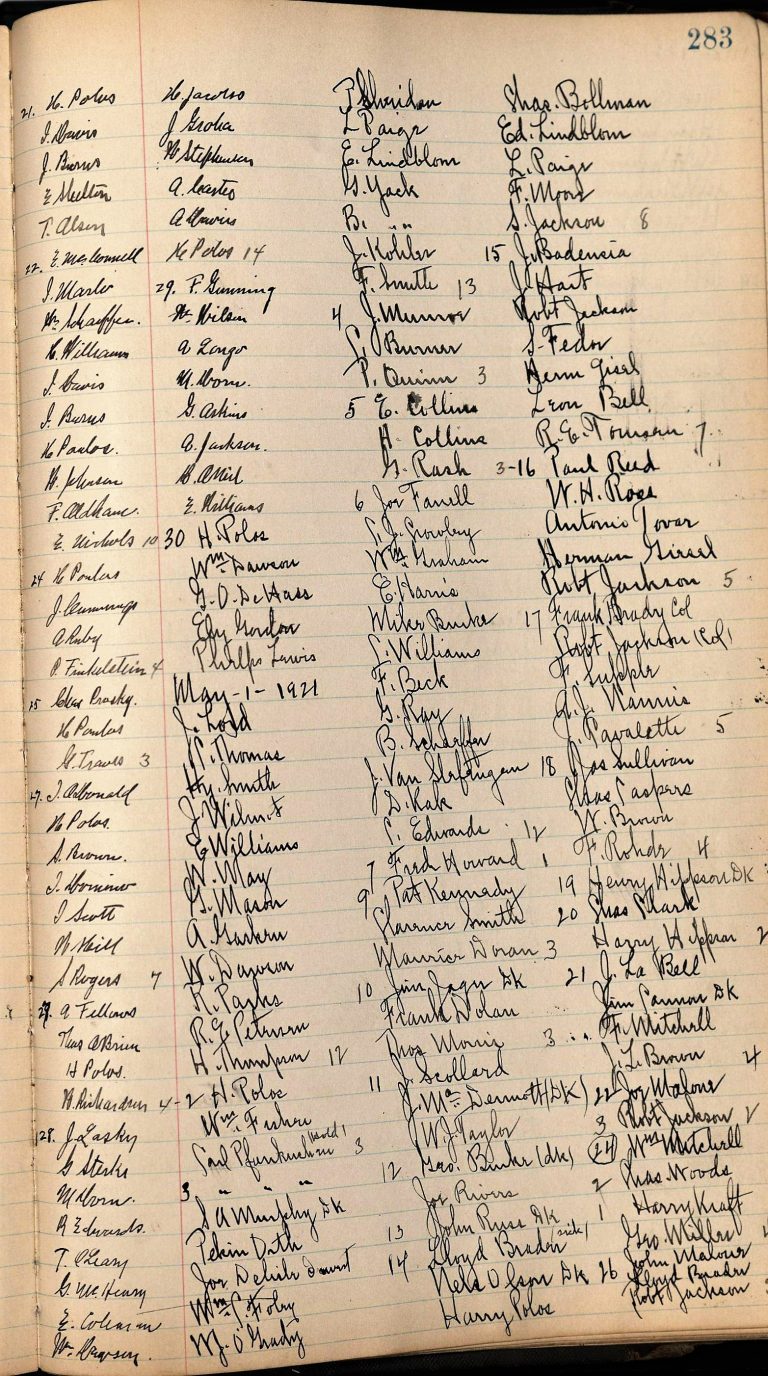 283
21. H. Polos
J. Davis
J. Burns
E Skelton
T. Olsen
22. E. McConnell
J. Marlo
Wm Schaeffer.
H. Williams
J. Davis
J. Burns
H Poulos.
H. Johnson
F. Oldham.
E. Nichols 10
24 H Poulos
J. Cummings
A Ruby
P. Finkelstein 4
25 Chas Prosky.
H Poulos
G. Traves 3
27. J. McDonald
H Polos.
S. Brown.
J. Domino
J Scott
W Hill
S Rogers 7
27. A Fellows
Thos O'Brien
H Polos.
W. Richardson 4
28. J. Lasky
G Sterks
M Dorn.
R Edwards.
T. O'Leary
G. McHenry
E. Coleman
Wm Dawson.
H Jacobs
J Groha
W Stephenson
A. Castro
A Davis
H Polos 14
29. F. Gunning
Wm Wilson
A Longo
M. Dorn.
G. Askins
A. Jackson.
E. Williams
30 H. Polos
Wm Dawson
G. O. DeHass
Ely Gordon
Phelps Lewis
May-1-1921
J. Lord
Thomas
Hy. Smith
J. Wilmot
E Williams
W. May
G. Mason
A. Garkern
W. Dawson
R. Parks
R. G. Peterson
H. Thompson 12
2 H. Polos
Wm. Fisher
Carl Pfankuchen 3
3 " " "
S A Murphy DK
Pekin Dath
Joe Delile
Wm. C. Foley
M. O'Grady
P Sheridan
L Paige
E. Lindblom
G. Yack
B. " "
J. Kohler
F. Smith 13
4 J. Munroe
C. Burner
P. Quinn 3
5 E. Collins
H. Collins
G. Rash 3
6 Joe Farrell
C. J. Crowley
Wm Graham
E. Harris
Mike Burke
C. Williams
F. Beck
G. Ray
B. Schaeffer
D. Kak
C. Edwards 12
7 Fred Howard 1
9 Pat Kennedy
Clarence Smith
Maurice Doran 3
10 Jim Jager DK
Frank Dolan
Thos Morris 3
11 J. Scollard
J. McDermott (DK)
W. J. Taylor
12 Geo. Burke (dk)
Joe Rivers
13 John Russ DK
14 Lloyd Brader (sick)
Nels Olson DK
Harry Polos
Chas. Bollman
Ed. Lindblom
L. Paige
F. Moore
S. Jackson 8
15 J. Badensia
J. Hart
Robt Jackson
S. Fedor
Herm Gisel
Leon Bell
7
16 Paul Reed
W. H. Ross
Antonio Tovar
Herman Giesel
Robt Jackson 5
17 Frank Brady Col
Robt Jackson (Col)
F. Supple
J. Mannis
J. Pavalette 5
18 Jas Sullivan
Chas Caspers
W. Brown
F. Rohde 4
19 Henry Hippson DK
20 Chas Clark
Harry Hippson 2
21 J. La Bell
Jim Cannon DK
F. Mitchell
J. L. Brown 4
22 Joe Malone
3 Robt Jackson 2
24 Wm Mitchell
2 Chas. Woods
1 Harry Kraft
Geo. Miller
26 John Malone
Lloyd Brader
Robt Jackson